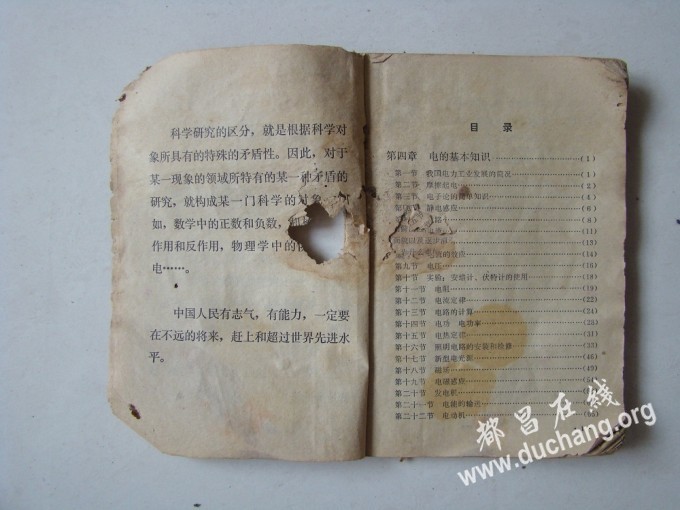 科学研究的区分，就是根据科学对
象所具有的特殊的矛盾性。因此，对于
某一现象的领域所特有的某一种矛盾的
研究，就构成某一门科学的对象。
如，数学中的正数和负数，
作用和反作用，物理学中的
电……。
中国人民有志气，有能力，一定要
在不远的将来，赶上和超过世界先进水
平。
目录
第四章 电的基本知识 (1)
第一节 我国电力工业发展的简况 (1)
第二节 摩擦起电 (2)
第三节 电子论的简单知识 (4)
静电感应 (6)
(8)
(11)
(13)
(14)
第九节 电压 (16)
第十节 实验：安培计、伏特计的使用 (18)
第十一节 电阻 (19)
第十二节 电流定律 (22)
第十三节 电路的计算 (24)
第十四节 电功 电功率
第十五节 电热定律
第十六节 照明电路的安装和检修
第十七节 新型电光源 (46)
第十八节 磁场 (49)
第十九节 电磁感应
第二十节 发电机
第二十一节 电能的输送
第二十二节 电动机
都昌在线
www.duchang.org